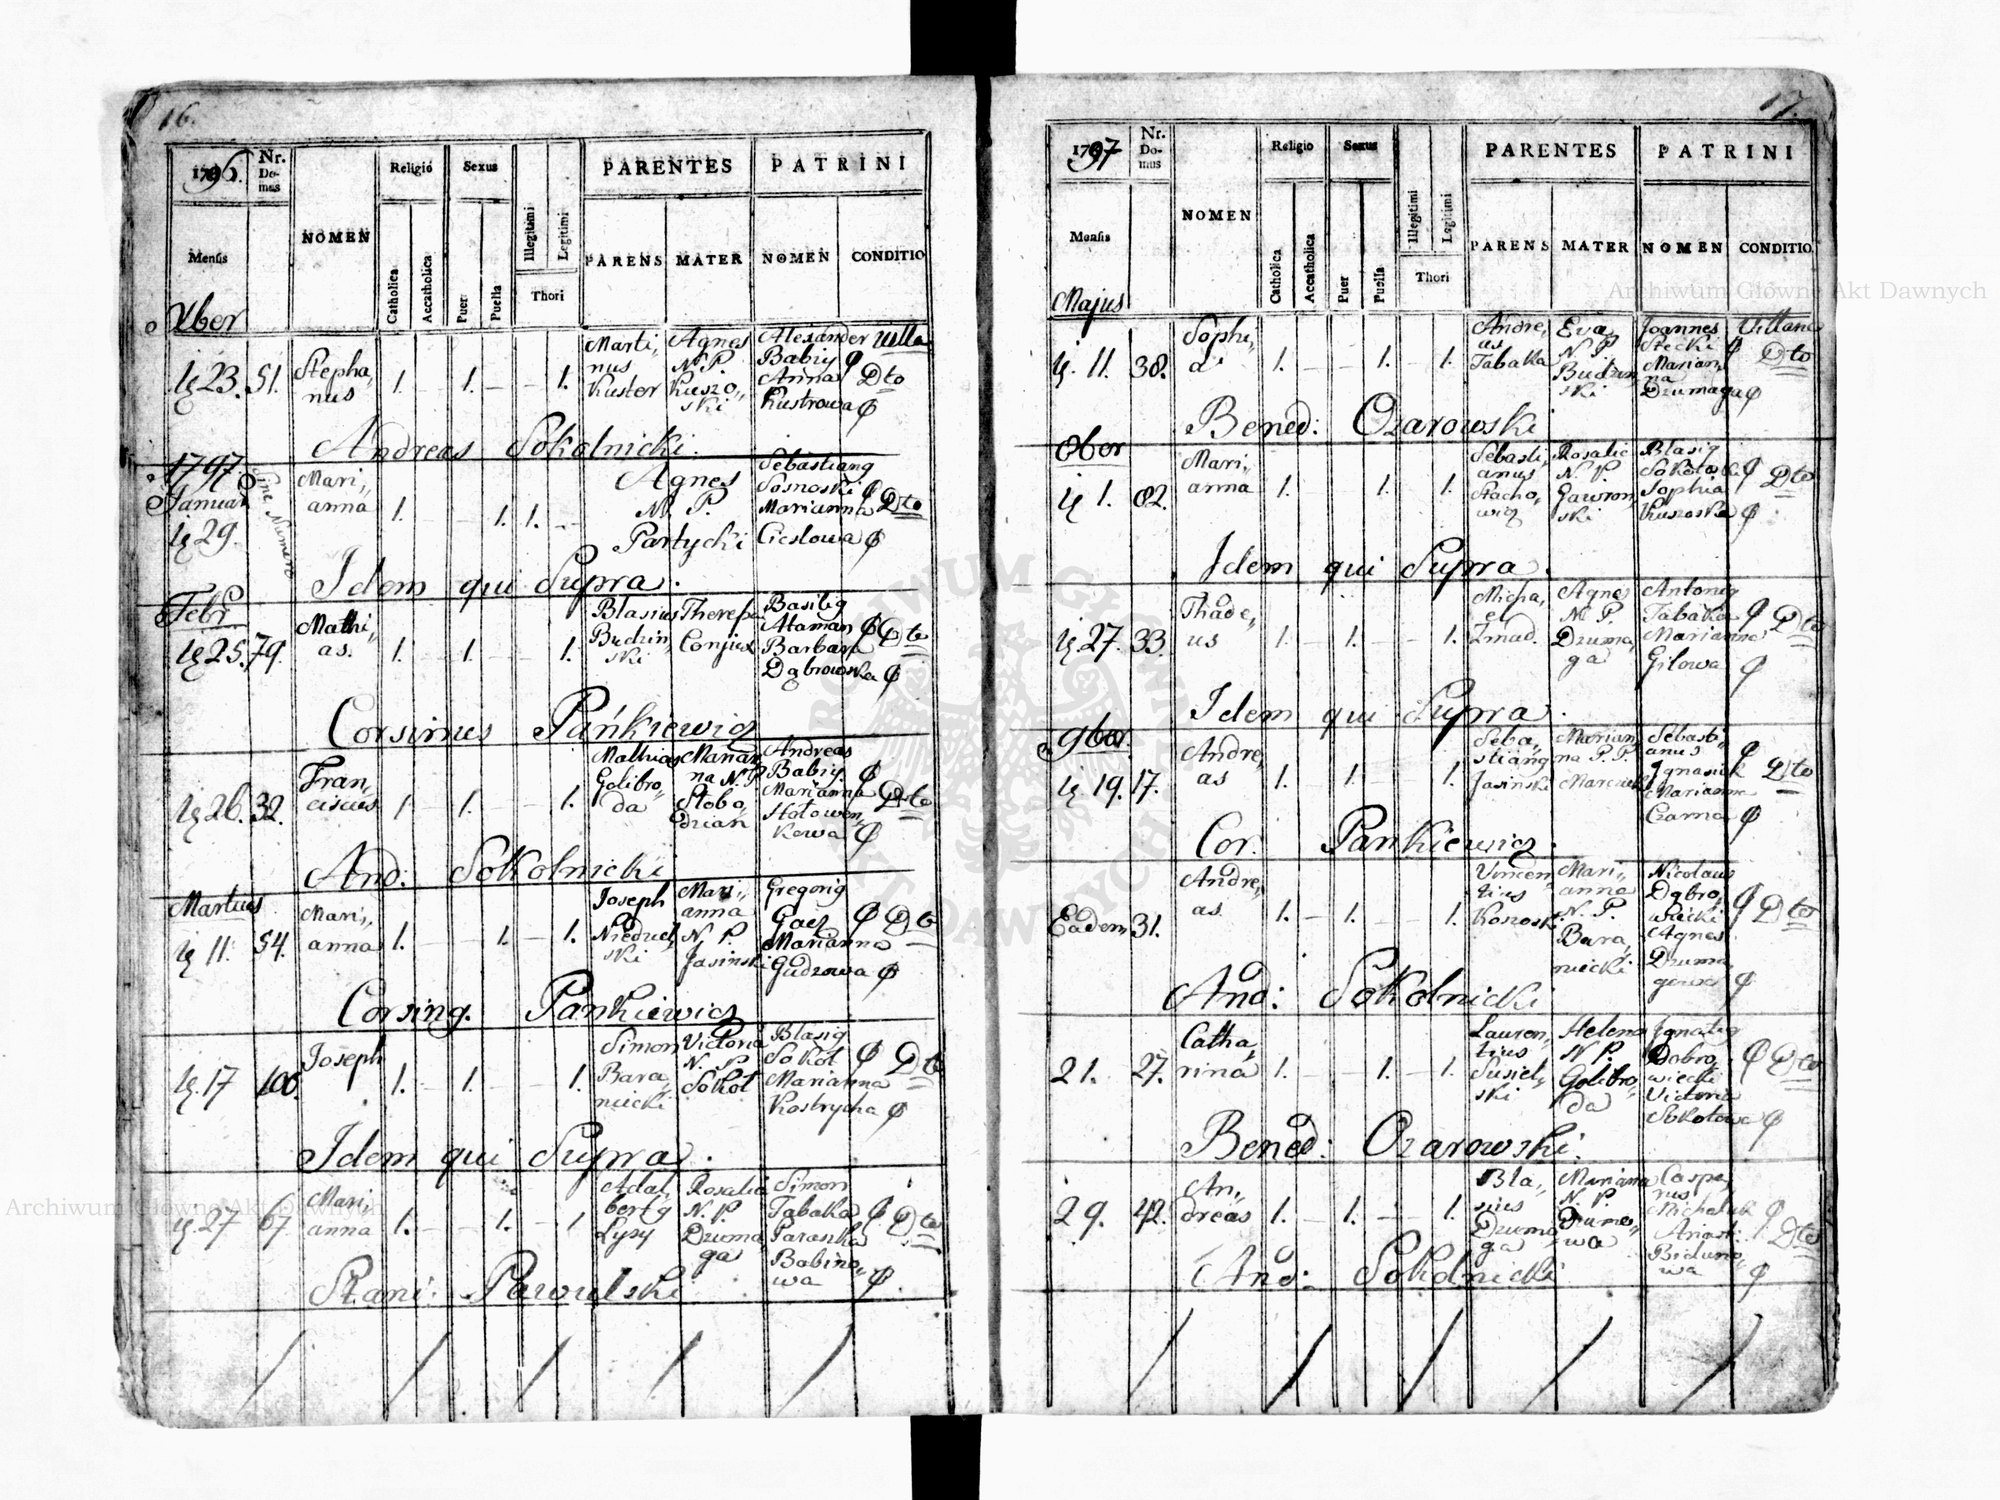 16.
1796.
Nr. Domus
NOMEN
Religio
Sexus
Illegitimi
Legitimi
Thori
PARENTES
PATRINI
Mensis
Catholica
Accatholica
Puer
Puella
PARENS
MATER
NOMEN
CONDITIO
Xber
23. 51. Stephanus 1. 1. 1. Martinus Kuster Agnes N. P. Kuszoski Alexander Babiy Anna Kustrowa Dto
Andreas Sokolnicki.
1797
Januar 29 Sine Numero Marianna 1. 1. 1. Agnes N. P. Partycki Sebastiang Sosnoski Marianna Cieslowa Dto
Idem qui Supra.
Febr
25. 79. Mathias. 1. 1. 1. Blasius Budzinski Theresa Conjux Basilig Ataman Barbara Dąbrowska Dto
Corsinus Pańkiewicz
26. 32. Franciscus 1. 1. 1. Mathias Golibroda Marianna N. P. Slobodzian Andreas Babiy. Marianna Hołowenkowa Dto
And: Sokolnicki
Martius
11. 54. Marianna 1. 1. 1. Joseph Niedzielski Marianna N. P. Jasinski Gregorig Gacz Marianna Gudzowa Dto
Corsing. Pankiewicz
17 100. Joseph 1. 1. 1. Simon Baraniecki Victoria N. P. Sokoł Blasig Sokoł Marianna Kostrycha Dto
Idem qui Supra.
27 67. Marianna 1. 1. 1 Adalbertg Lysy Rosalia N. P. Dzumaga Simon Tabaka Paraska Babinowa Dto
Stani: Pawulski
17.
1797
Nr. Domus
NOMEN
Religio
Sexus
Illegitimi
Legitimi
Thori
PARENTES
PATRINI
Mensis
Catholica
Accatholica
Puer
Puella
PARENS
MATER
NOMEN
CONDITIO
Majus
11. 38. Sophia 1. 1. 1. Andreas Tabaka Eva N. P. Budzinski Joannes Stecki Marianna Dzumaga Dto
Bened: Ozarowski
8ber
1. 82. Marianna 1. 1. 1. Sebastianus Stachowicz Rosalie N. P. Gawronski Blasig Sophia Kuszoska Dto
Idem qui Supra.
27. 33. Thadeus 1. 1. 1. Michael Zmud. Agnes N. P. Dzumaga Antonig Tabaka Marianna Gilowa Dto
Idem qui Supra.
9ber.
19. 17. Andreas 1. 1. 1. Sebastiang Jasinski Marianna P. P. Sebastianus Ignasiuk Marianna Czarna Dto
Cor. Pankiewicz.
Eadem 31. Andreas. 1. 1. 1. Vincentius Koszoski Marianna N. P. Baraniecki Nicolaus Dąbrowiecki Agnes Dzumagowa Dto
And: Sokolnicki
21. 27. Catharina 1. 1. 1. Laurentius Susielski Helena N. P. Golibroda Ignatig Dobrowiecki Victoria Sokołowa Dto
Bened: Ozarowski.
29. 42. Andreas 1. 1. 1. Blasius Dzumaga Marianna N. P. Casperus Michaluk Dto
And: Sokolnicki
Archiwum Główne Akt Dawnych
Archiwum Główne Akt Dawnych
ARCHIWUM GŁÓWNE AKT DAWNYCH